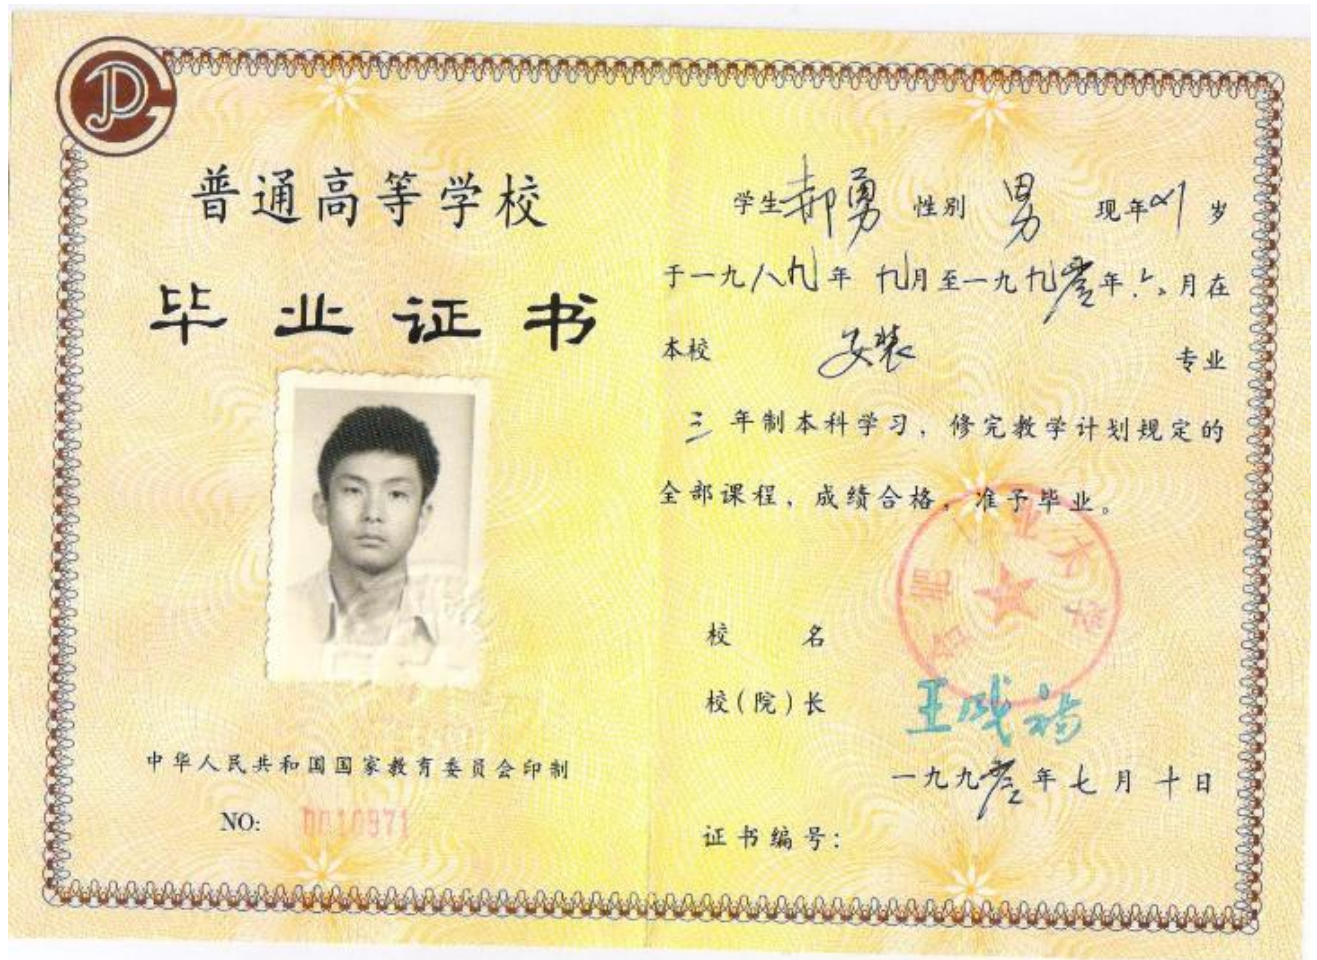 普通高等学校
毕业证书
中华人民共和国国家教育委员会印制
NO: 0010971
学生 郝勇 性别 男 现年 21 岁
于一九八九年 九月至一九九叁年 六月在
本校 安装 专业
三 年制本科学习,修完教学计划规定的
全部课程,成绩合格,准予毕业。
合肥工业大学
校 名
校(院)长
一九九叁年七月十日
证书编号: